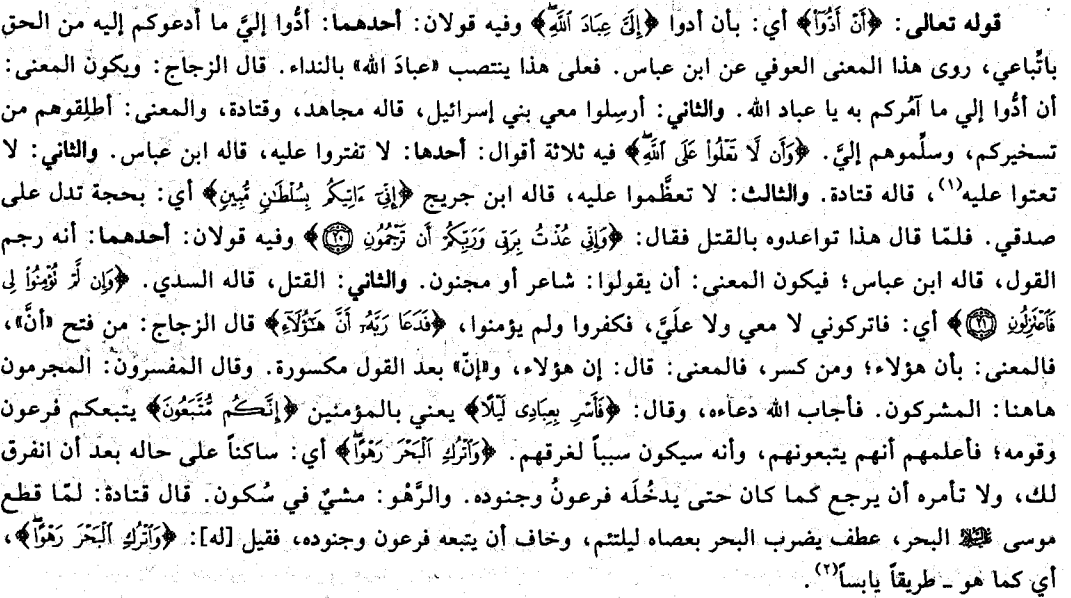 قوله تعالى: ﴿أَنْ أَدُّوٓا۟﴾ أي: بأن أدوا ﴿إِلَىَّ عِبَادَ ٱللَّهِ ۖ﴾ وفيه قولان: أحدهما: أدُّوا إليَّ ما أدعوكم إليه من الحق
باتِّباعي، روى هذا المعنى العوفي عن ابن عباس. فعلى هذا ينتصب «عبادَ الله» بالنداء. قال الزجاج: ويكون المعنى:
أن أدُّوا إلي ما آمُركم به يا عباد الله. والثاني: أرسِلوا معي بني إسرائيل، قاله مجاهد، وقتادة، والمعنى: أطلِقوهم من
تسخيركم، وسلِّموهم إليَّ. ﴿وَأَن لَّا تَعْلُوا۟ عَلَى ٱللَّهِ ۖ﴾ فيه ثلاثة أقوال: أحدها: لا تفتروا عليه، قاله ابن عباس. والثاني: لا
تعتوا عليه(١)، قاله قتادة. والثالث: لا تعظَّموا عليه، قاله ابن جريج ﴿إِنِّىٓ ءَاتِيكُم بِسُلْطَـٰنٍ مُّبِينٍ﴾ أي: بحجة تدل على
صدقي. فلمّا قال هذا تواعدوه بالقتل فقال: ﴿وَإِنِّى عُذْتُ بِرَبِّى وَرَبِّكُمْ أَن تَرْجُمُونِ ٢٠﴾ وفيه قولان: أحدهما: أنه رجم
القول، قاله ابن عباس؛ فيكون المعنى: أن يقولوا: شاعر أو مجنون. والثاني: القتل، قاله السدي. ﴿وَإِن لَّمْ تُؤْمِنُوا۟ لِى
فَٱعْتَزِلُونِ ٢١﴾ أي: فاتركوني لا معي ولا علَيَّ، فكفروا ولم يؤمنوا، ﴿فَدَعَا رَبَّهُۥٓ أَنَّ هَـٰٓؤُلَآءِ﴾ قال الزجاج: من فتح «أنَّ»،
فالمعنى: بأن هؤلاء؛ ومن كسر، فالمعنى: قال: إن هؤلاء، و«إنّ» بعد القول مكسورة. وقال المفسرون: المجرمون
هاهنا: المشركون. فأجاب الله دعاءه، وقال: ﴿فَأَسْرِ بِعِبَادِى لَيْلًا﴾ يعني بالمؤمنين ﴿إِنَّكُم مُّتَّبَعُونَ﴾ يتبعكم فرعون
وقومه؛ فأعلمهم أنهم يتبعونهم، وأنه سيكون سبباً لغرقهم. ﴿وَٱتْرُكِ ٱلْبَحْرَ رَهْوًا ۖ﴾ أي: ساكناً على حاله بعد أن انفرق
لك، ولا تأمره أن يرجع كما كان حتى يدخُلَه فرعونُ وجنوده. والرَّهْو: مشيٌ في سُكون. قال قتادة: لمّا قطع
موسى عليه السلام البحر، عطف يضرب البحر بعصاه ليلتئم، وخاف أن يتبعه فرعون وجنوده، فقيل [له]: ﴿وَٱتْرُكِ ٱلْبَحْرَ رَهْوًا ۖ﴾،
أي كما هو ـ طريقاً يابساً(٢).